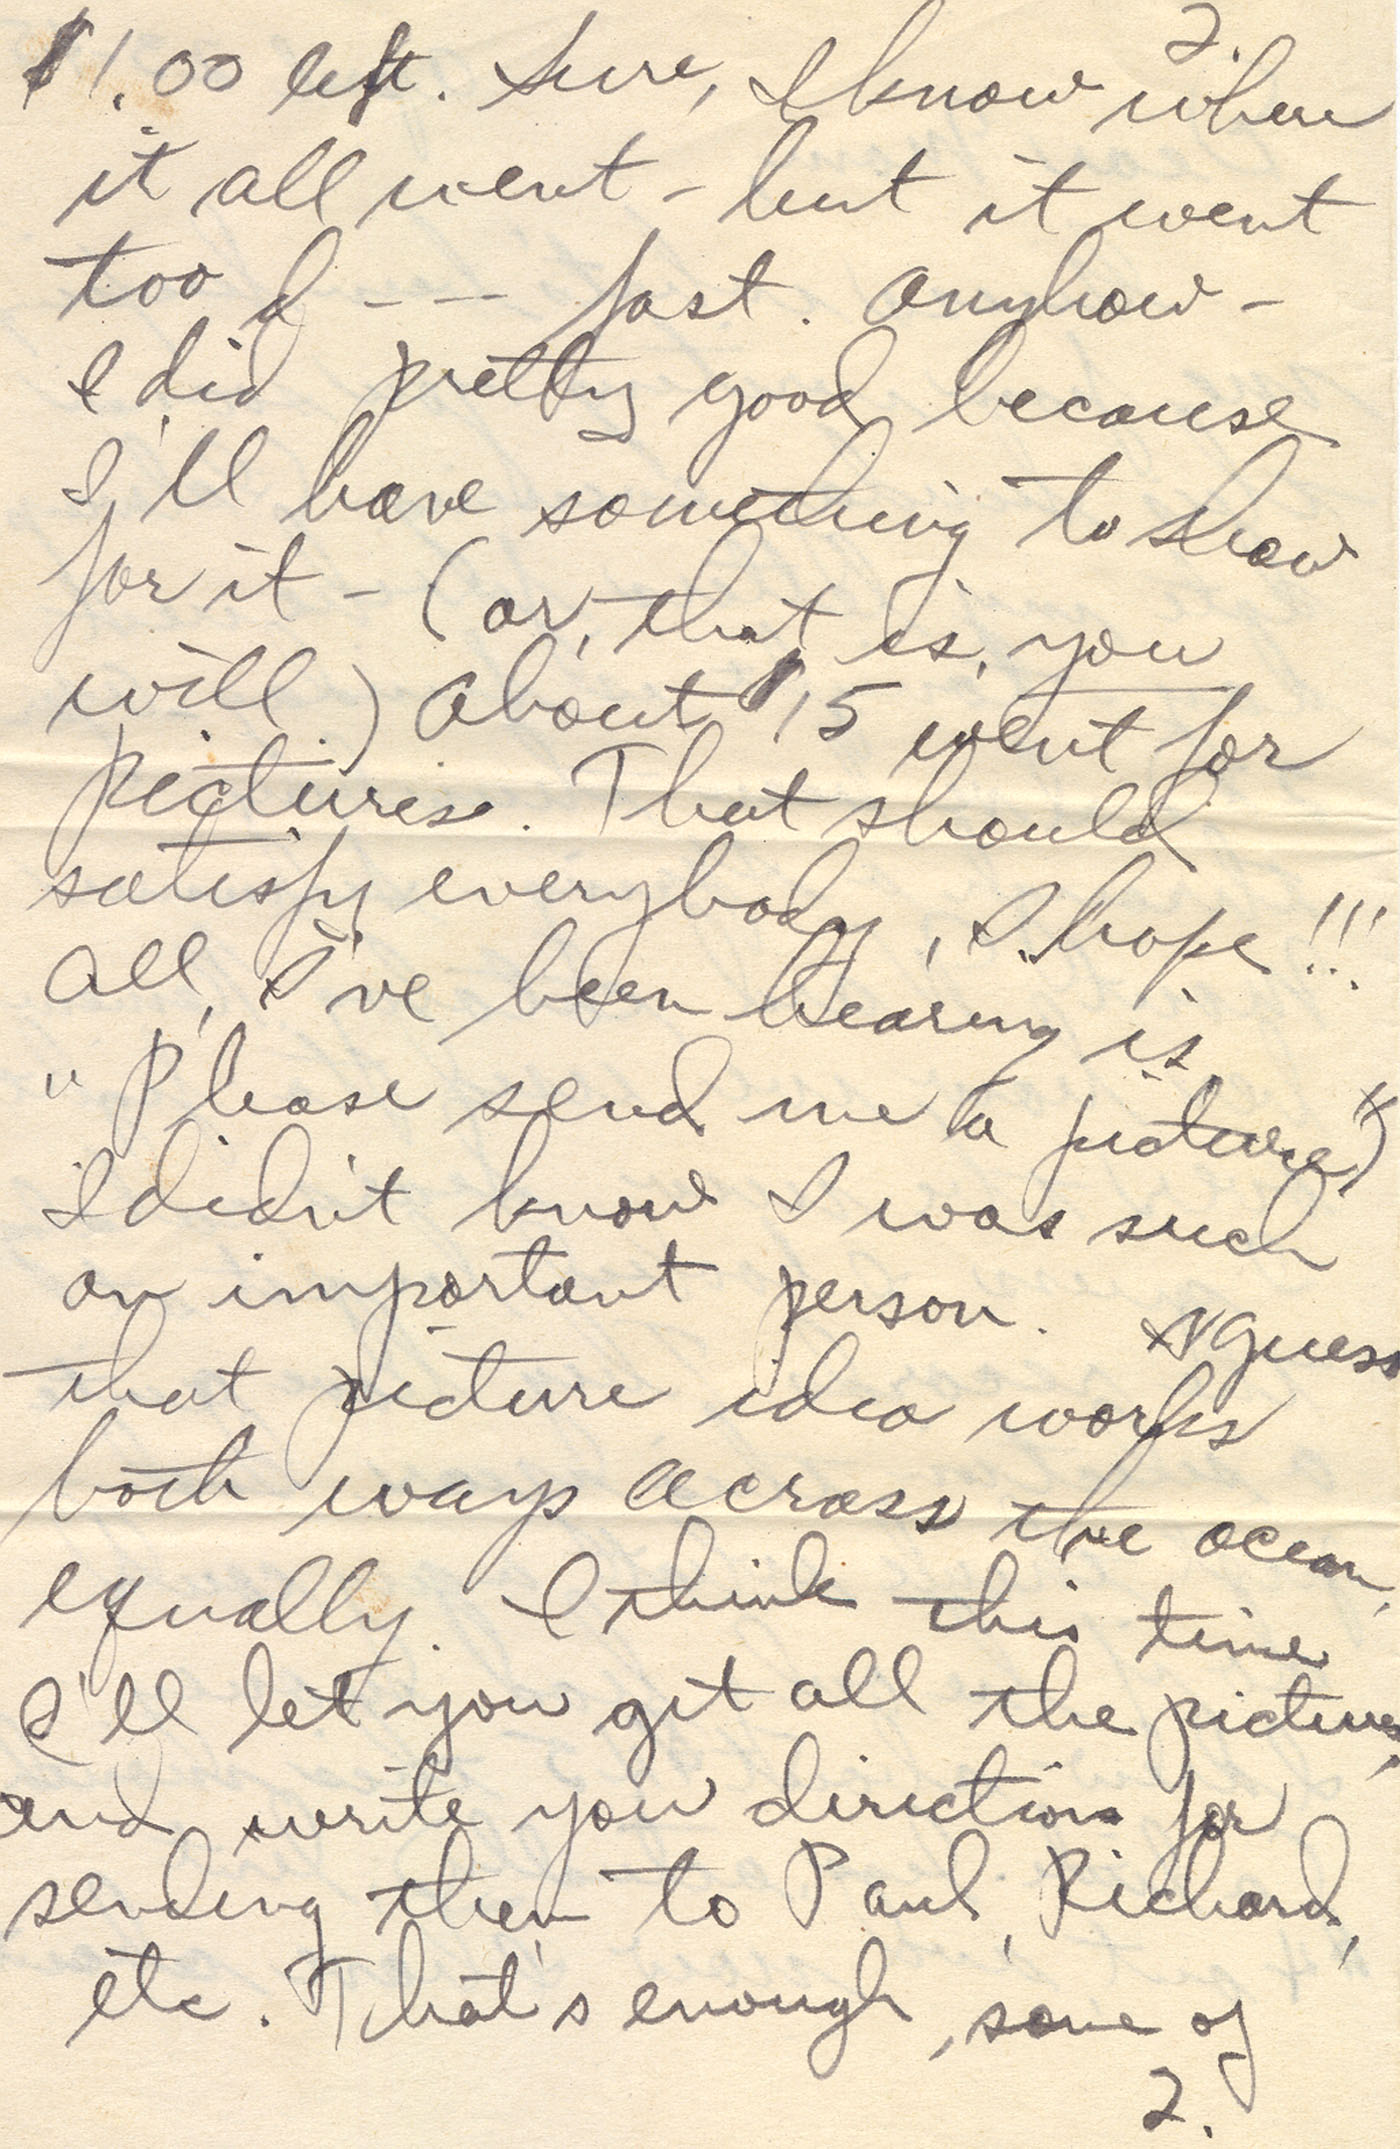 2.
$1.00 left. Sure, I know where
it all went - but it went
too d - - - fast. Anyhow -
I did pretty good because
I'll have something to show
for it - (or, that is, you
will.) About $15 went for
pictures. That should
satisfy everybody, I hope!!!
All I've been hearing is
"Please send me a picture")
I didn't know I was such
an important person. I guess
that picture idea works
both ways across the ocean,
equally. I think this time
I'll let you get all the pictures,
and write you directions for
sending them to Paul, Richard,
etc. That's enough, some of
2.